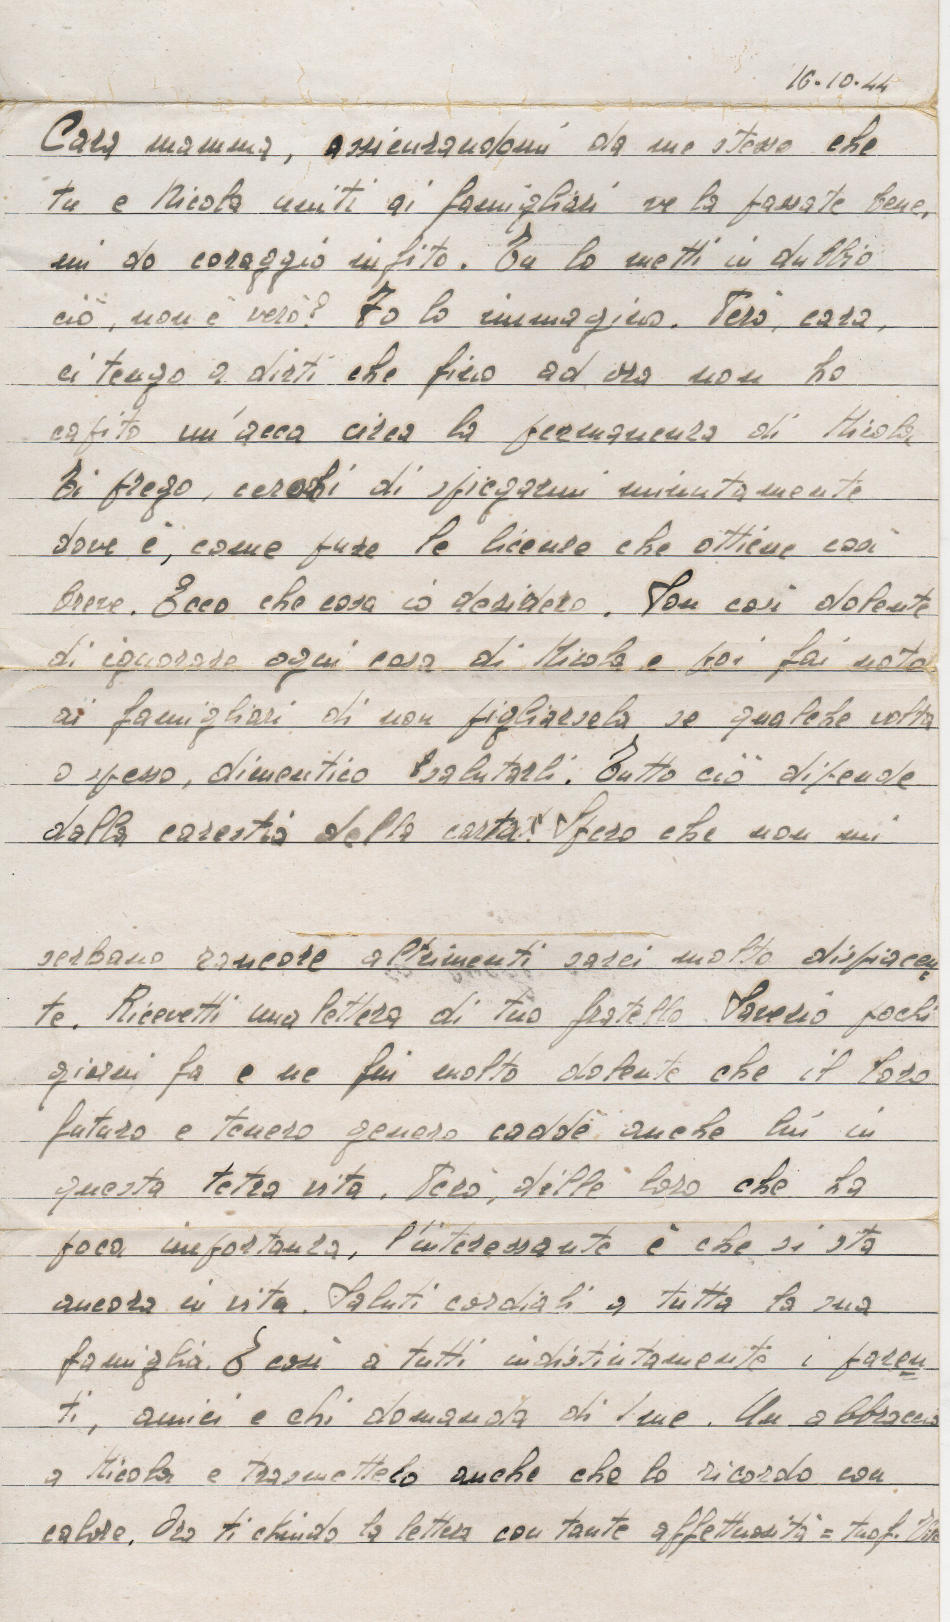 16-10-44
Cara mamma, assicurandomi da me stesso che
tu e Nicola uniti ai famigliari ve la passate bene,
mi do coraggio infito. Tu lo metti in dubbio
ciò, non è vero? Io lo immagino. Però, cara,
ci tengo a dirti che fino ad ora non ho
capito un'acca circa la permanenza di Nicola.
Ti prego, cerchi di spiegarmi minutamente
dove è, come pure le licenze che ottiene così
breve. Ecco che cosa io desidero. Son così dolente
di ignorare ogni cosa di Nicola e poi fai noto
ai famigliari di non pigliarsela se qualche volta
o spesso, dimentico salutarli. Tutto ciò dipende
dalla carestia della carta! Spero che non mi
serbano rancore altrimenti sarei molto dispiacen
te. Ricevetti una lettera di tuo fratello Saverio pochi
giorni fa e ne fui molto dolente che il loro
futuro e tenero genero caddè anche lui in
questa tetra vita. Però, dille loro che ha
poca importanza, l'interessante è che si sta
ancora in vita. Saluti cordiali a tutta la sua
famiglia. E così a tutti indistintamente i paren
ti, amici e chi domanda di me. Un abbraccio
a Nicola e trasmettelo anche che lo ricordo con
calore. Ora ti chiudo la lettera con tante affettuosità = tuo f.